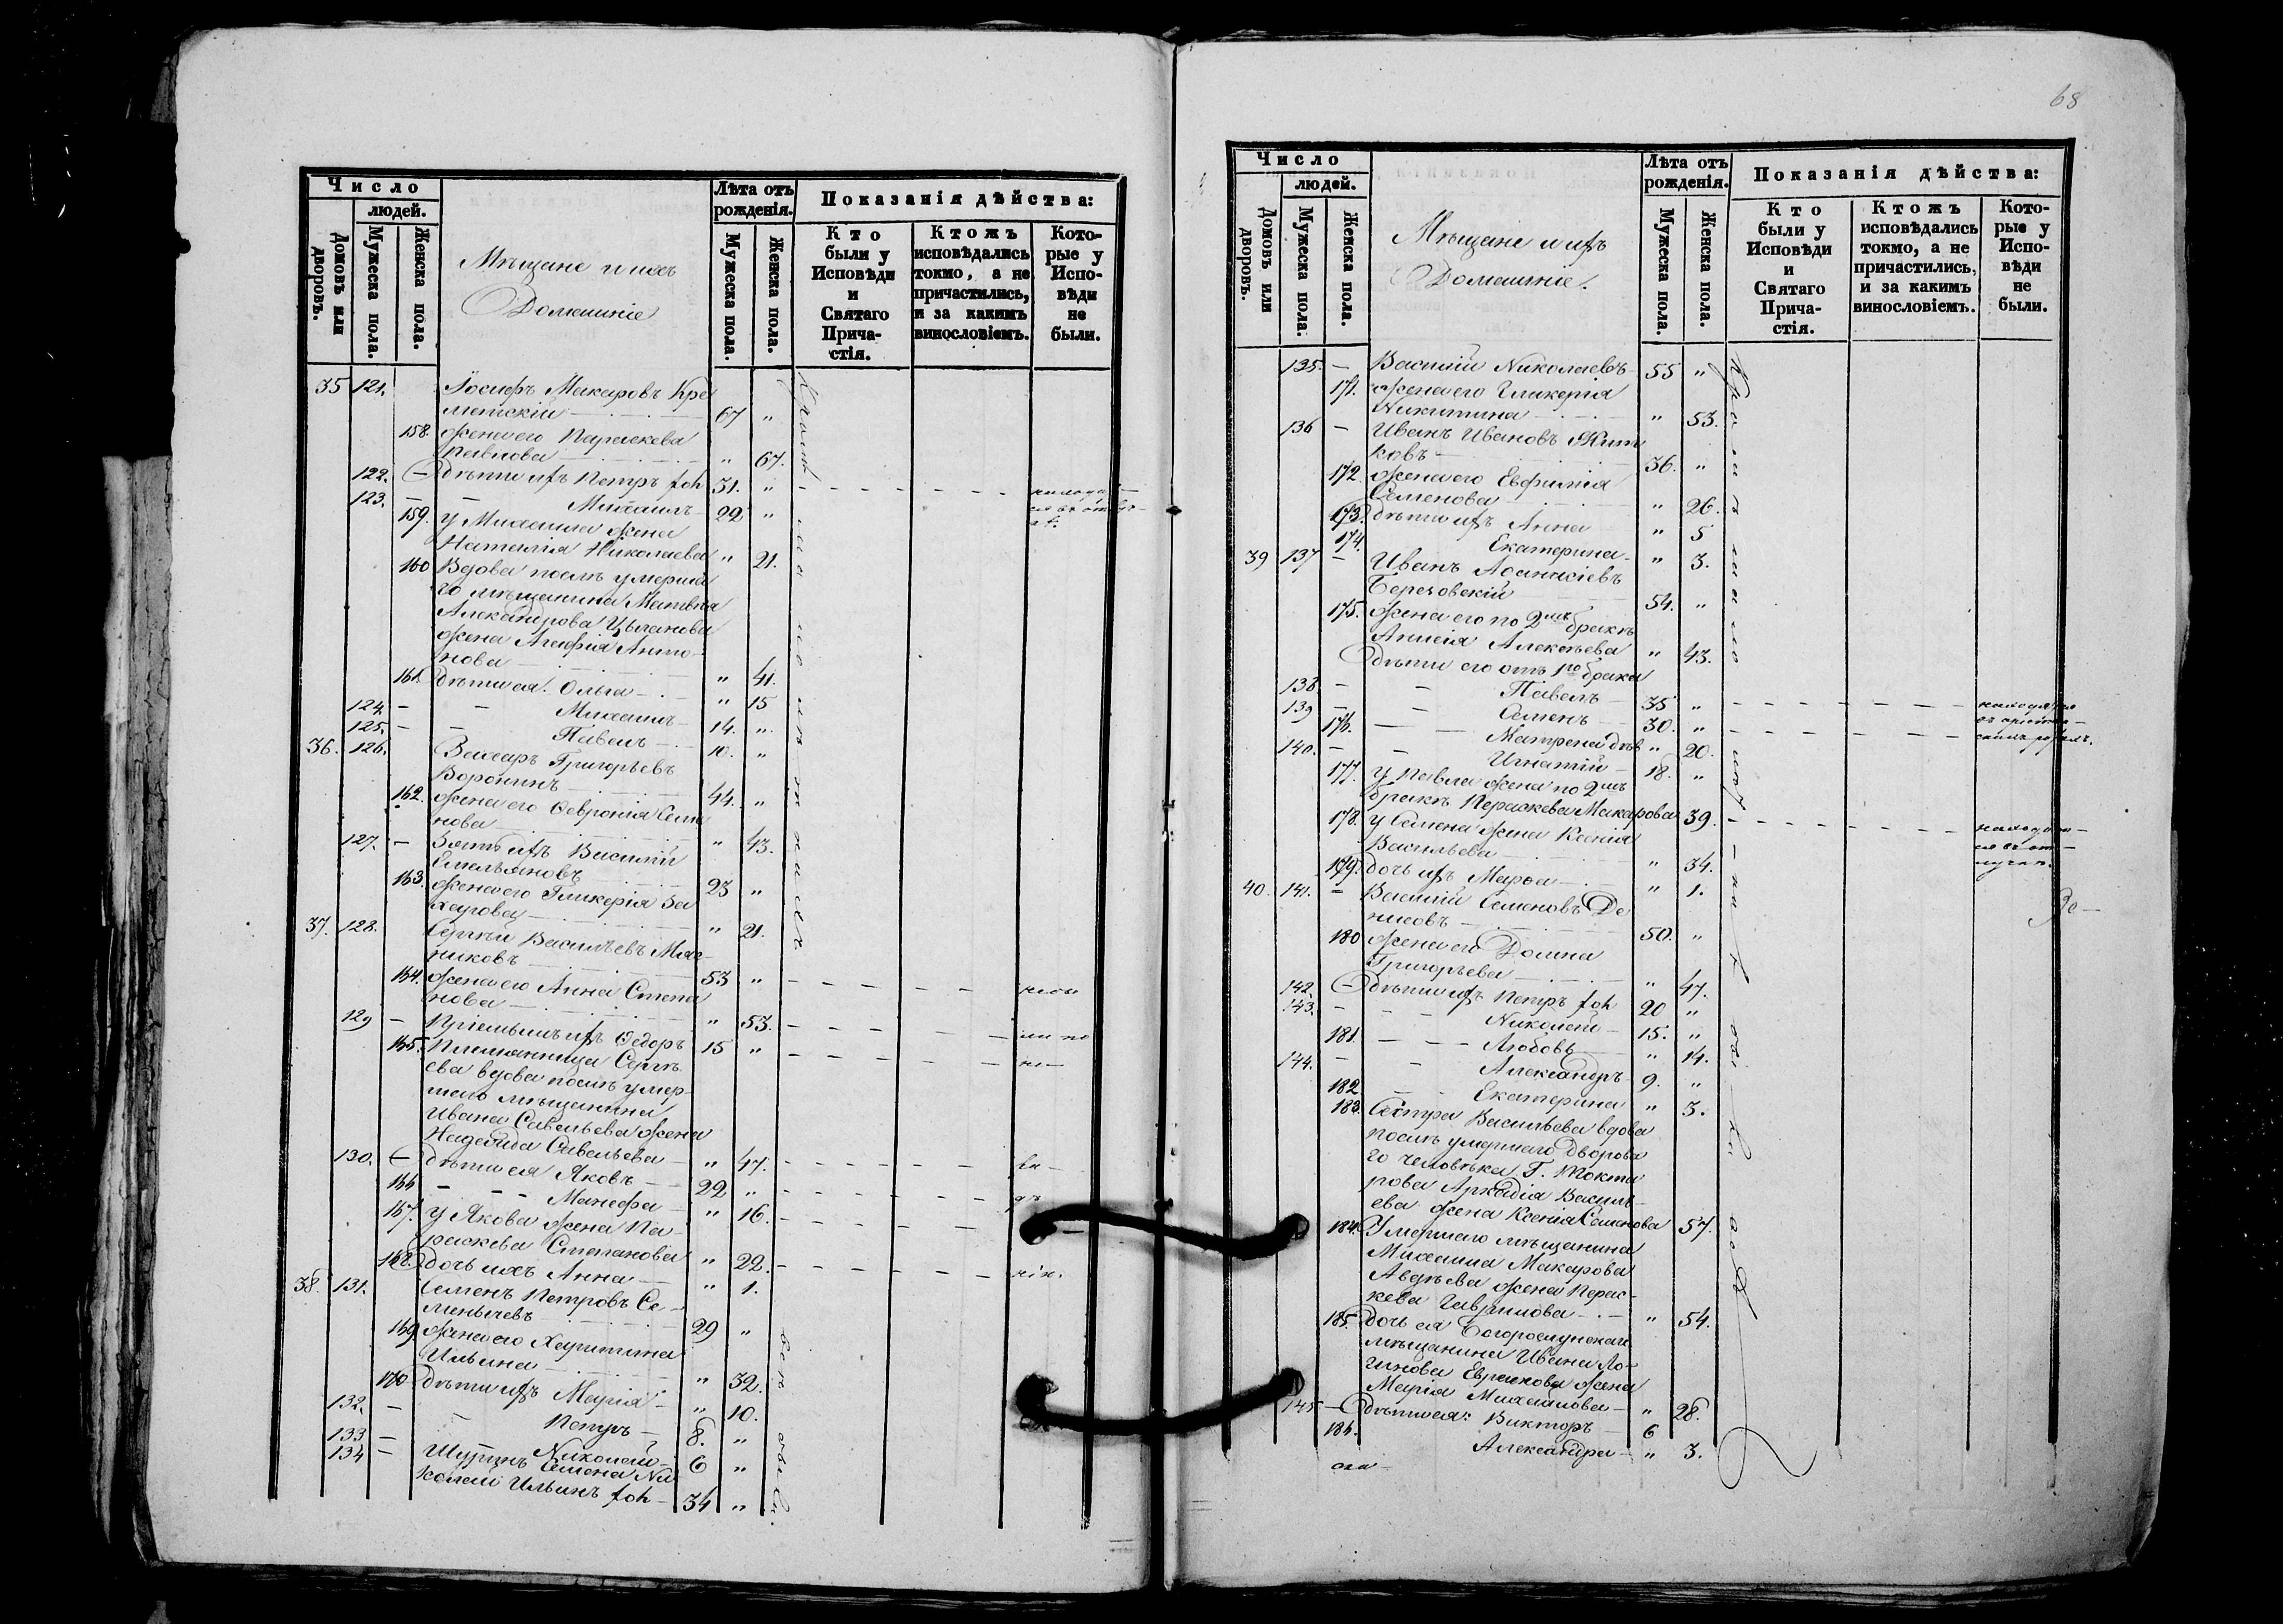 Число
людей.
Домовъ или дворовъ.
Мужеска пола.
Женска пола.
Мѣщане и ихъ
Домашніе
Лѣта отъ рожденія.
Мужеска пола.
Женска пола.
Показанія дѣйства:
Кто были у Исповѣди и Святаго Причастія.
Ктожъ исповѣдались токмо, а не причастились, и за какимъ винословіемъ.
Которые у Исповѣди не были.
35 121. Іосифъ Макаровъ Кре
метскій 67 „
158. жена его Параскева
Павлова „ 67.
122. – дѣти ихъ Петръ хол 31. „
123. – – Михаилъ 22 „
159. у Михаила жена
Наталія Николаева „ 21.
160 Вдова послѣ умерша
го мѣщанина Матвѣя
Александрова Цыганова
жена Агафія Анто
нова „ 41.
161. дѣти ея. Ольга „ 15
124. – – Михаилъ 14. „
125. – – Павелъ 10. „
36. 126. Захаръ Григорьевъ
Воронинъ 44. „
162. жена его Ѳевронія Семе
нова „ 43.
127. – Зять ихъ Василій
Емельяновъ 23 „
163. жена его Гликерія За
харова „ 21.
37. 128. Сергѣй Васильевъ Мяс
никовъ 53 „
164. жена его Анна Степа
нова „ 53.
129 – Пріемышъ ихъ Ѳедоръ 15 „
165. Племянница Сергѣ
ева вдова послѣ умер
шаго мѣщанина
Ивана Савельева жена
Надежда Савельева „ 47.
130. – дѣти ея Яковъ 22 „
166 – – – Манефа „ 16.
167. у Якова жена Па
раскева Степанова „ 22.
168. дочь ихъ Анна „ 1.
38. 131. Семенъ Петровъ Се
менычевъ 29 „
169. жена его Харитина
Ильина „ 32.
170 дѣти ихъ Марія „ 10.
132. – – Петръ 8. „
133 – Николай 6 „
134 – Шуринъ Семена Ни
колай Ильинъ хол 34 „
68
Число
людей.
Домовъ или дворовъ.
Мужеска пола.
Женска пола.
Мѣщане и ихъ
Домашніе.
Лѣта отъ рожденія.
Мужеска пола.
Женска пола.
Показанія дѣйства:
Кто были у Исповѣди и Святаго Причастія.
Ктожъ исповѣдались токмо, а не причастились, и за какимъ винословіемъ.
Которые у Исповѣди не были.
135. – Василій Николаевъ 55 „
171. жена его Гликерія
Никитина „ 53.
136 – Иванъ Ивановъ Жит
ковъ 36. „
172. жена его Евфимія
Семенова „ 26.
173. дѣти ихъ Анна „ 5
174. Екатерина „ 3.
39 137 – Иванъ Аѳанасіевъ
Березовскій 54. „
175. жена его по 2мъ бракѣ
Анисія Алексѣева „ 43.
дѣти его отъ 1го брака
138. – – Павелъ 35 „
139 – – Семенъ 30. „
176. – – Матрена дѣв „ 20.
140. – – Игнатій 18. „
177. у Павла жена по 2мъ
бракѣ Параскева Макарова 39.
178. у Семена жена Ксенія
Васильева „ 34.
179. дочь ихъ Марѳа „ 1.
40. 141. – Василій Семеновъ Де
нисовъ 50. „
180 жена его Домна
Григорьева „ 47.
142. – дѣти ихъ Петръ хол 20 „
143. – – Николай 15. „
181. – – – Любовь „ 14.
144. – – Александръ 9. „
182 Екатерина „ 3.
183. Сестра Васильева вдова
послѣ умершаго дворова
го человѣка Г. Токма
рова Аркадія Василь
ева жена Ксенія Семенова 57.
184. Умершаго мѣщанина
Михаила Макарова
Авдѣева жена Парас
кева Гаврилова „ 54.
185. дочь ея Богорослунскаго
мѣщанина Ивана Ло
гинова Евранова жена
Марія Михаилова „ 28.
145 – дѣти ея: Викторъ 6
186. Александра „ 3.